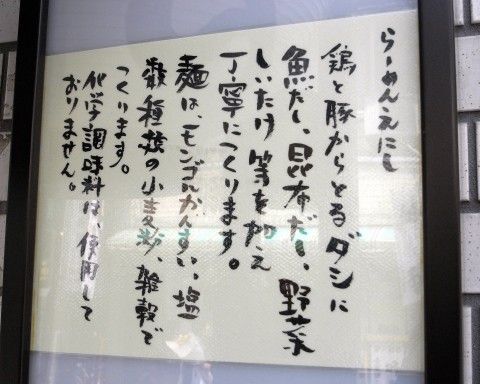 らーめんえにし
鶏と豚からとるダシに
魚だし、昆布だし、野菜
しいたけ等を加え
丁寧につくります。
麺は、モンゴルかんすい、塩
数種類の小麦粉、雑穀で
つくります。
化学調味料は、使用して
おりません。